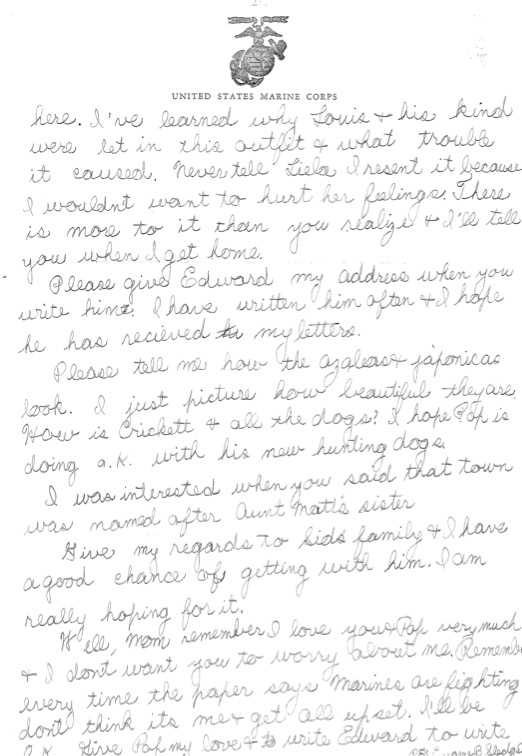 UNITED STATES MARINE CORPS
here. I've learned why Louis & his kind
were let in this outfit & what trouble
it caused. Never tell Liela I resent it because
I wouldn't want to hurt her feelings. There
is more to it than you realize & I'll tell
you when I get home.
Please give Edward my address when you
write him. I have written him often & I hope
he has recieved my letters.
Please tell me how the azaleas & japonicas
look. I just picture how beautiful they are.
How is Crickett & all the dogs? I hope Pop is
doing o.k. with his new hunting dogs.
I was interested when you said that town
was named after Aunt Matti's sister
Give my regards to Sids family & I have
a good chance of getting with him. I am
really hoping for it.
Well, Mom remember I love you & Pop very much
& I dont want you to worry about me. Remember
every time the paper says Marines are fighting
dont think its me & get all upset. I'll be
O.K. Give Pop my love & to write Edward to write